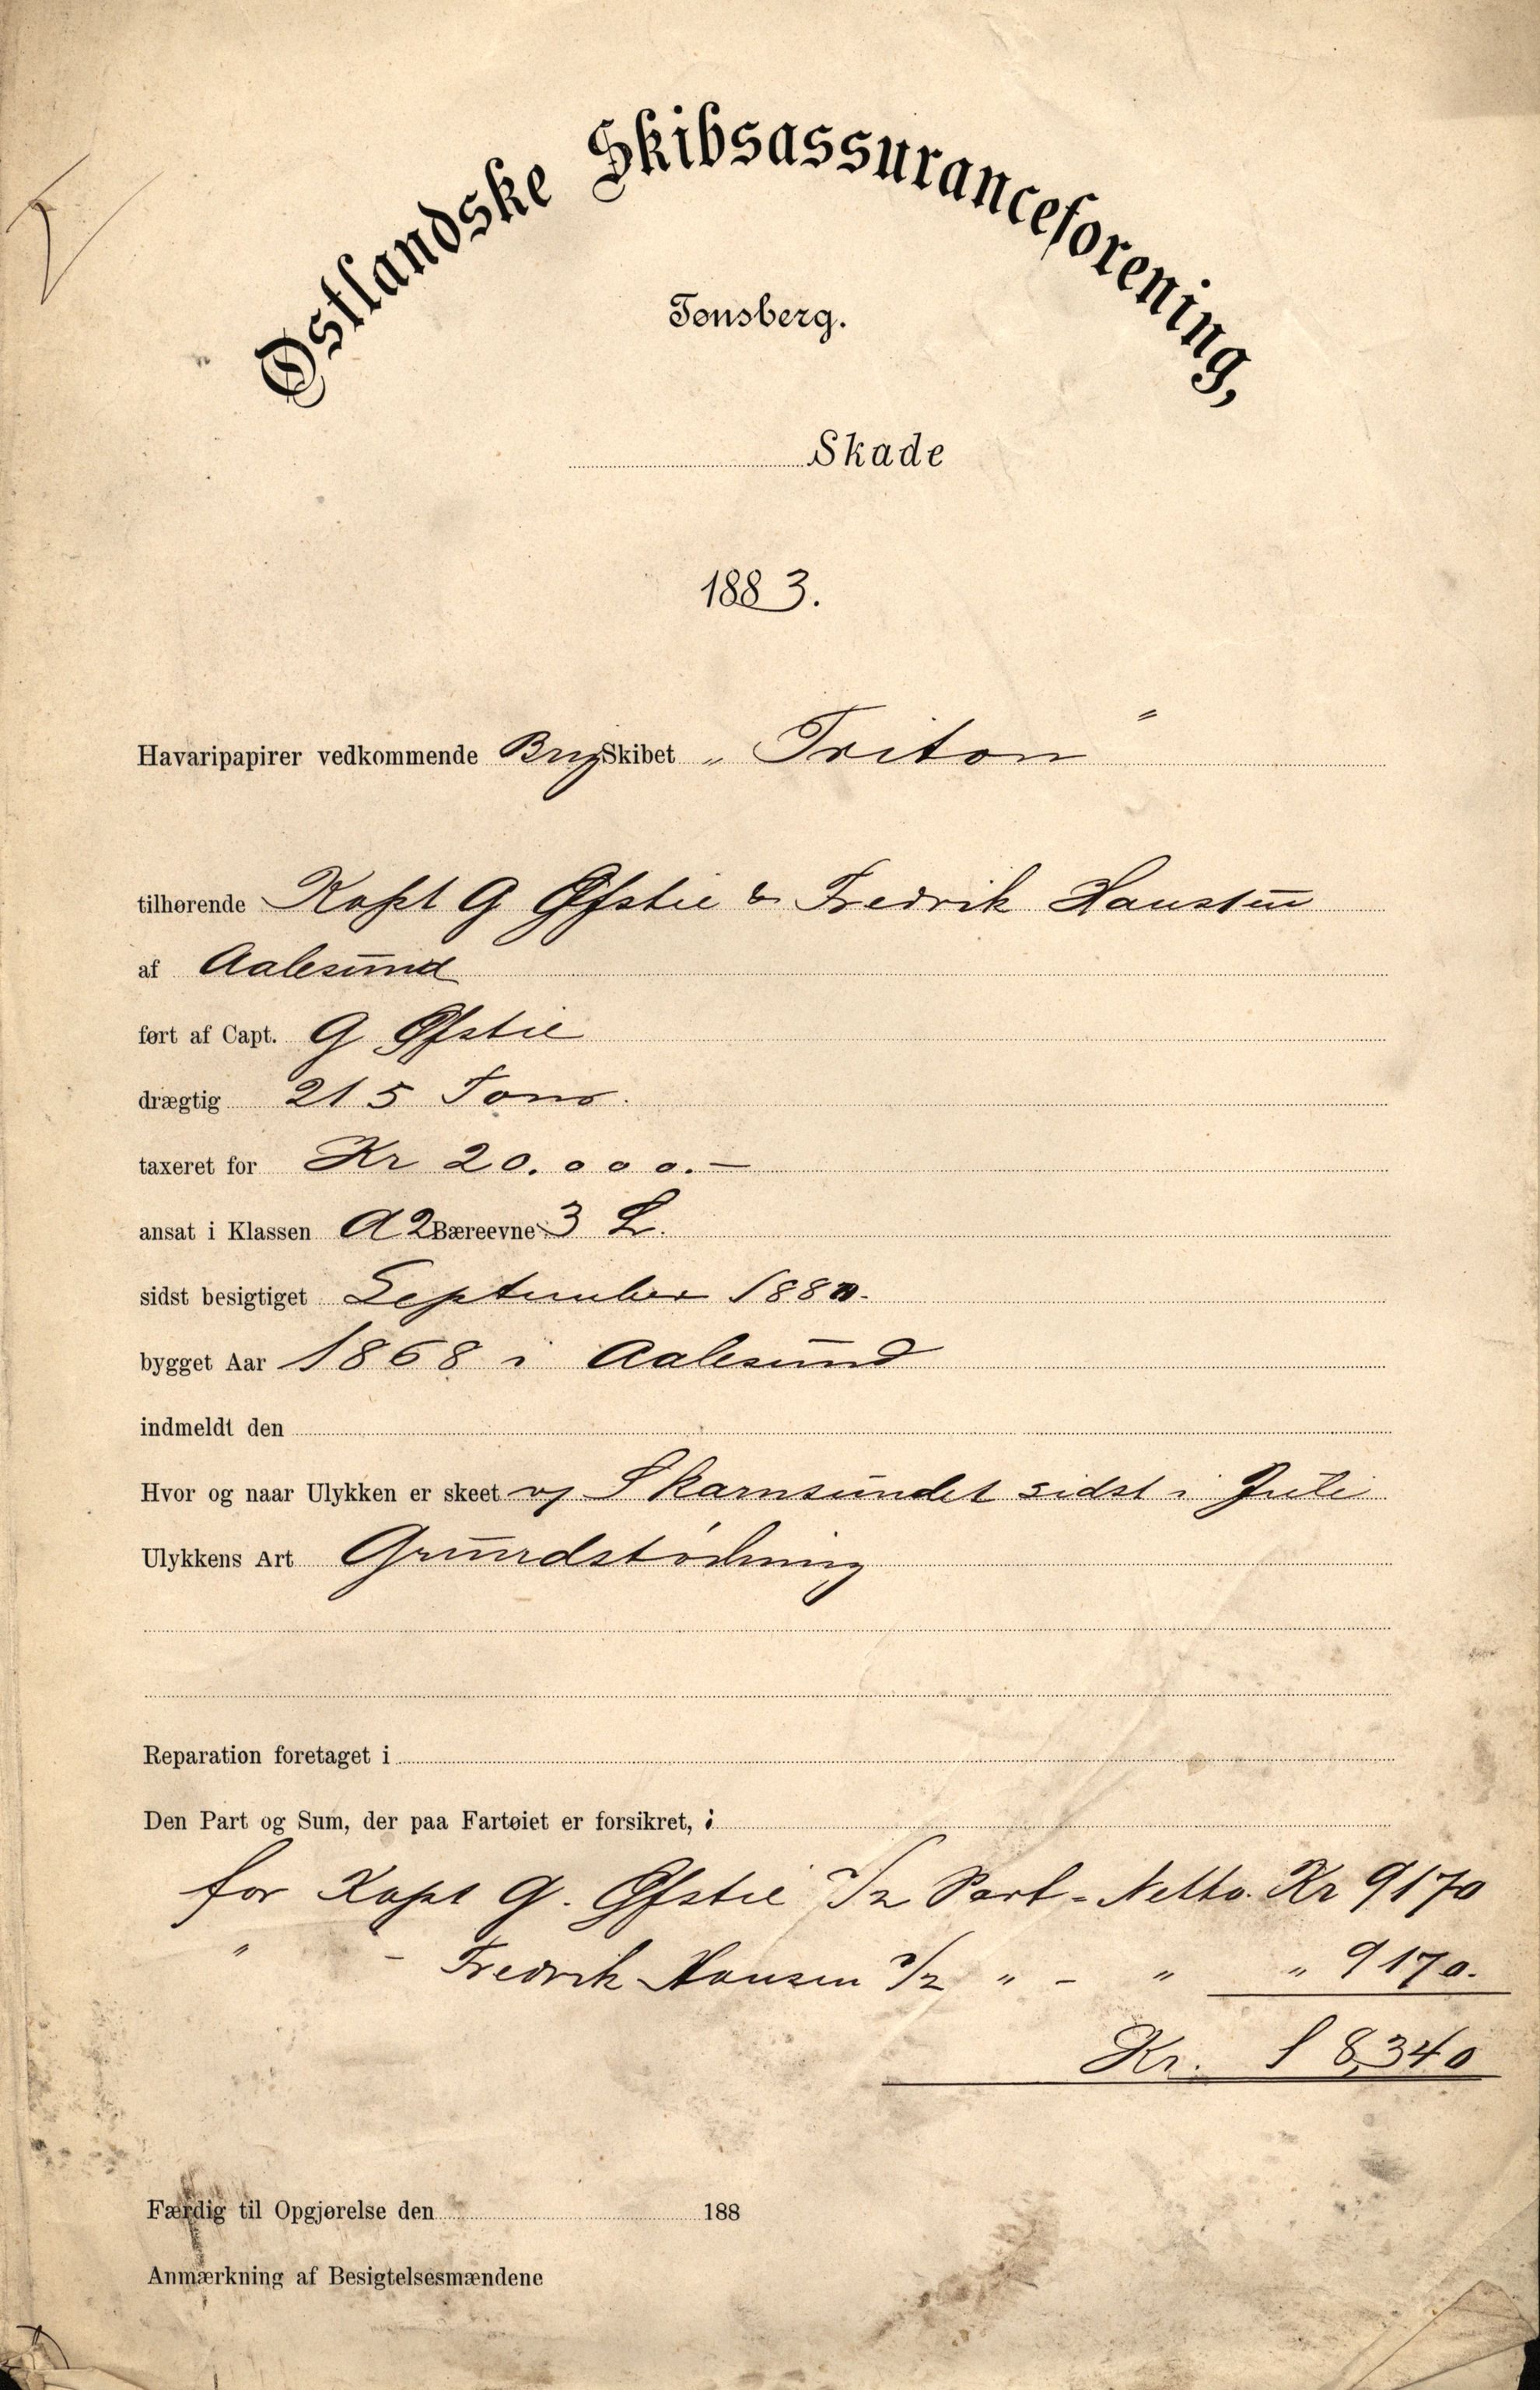 Østlandske Skibsassuranceforening,
Tønsberg.
Skade
1883.
Havaripapirer vedkommende Brig Skibet „ Triton "
tilhørende Kapt G Øfstie & Fredrik Hansen
af Aalesund
ført af Capt. G Øfstie
drægtig 215 Tons.
taxeret for Kr 20.000.—
ansat i Klassen A2 Bæreevne 3 L.
sidst besigtiget September 188
bygget Aar 1868 i Aalesund
indmeldt den
Hvor og naar Ulykken er skeet Skarnsundet sidst i Juli
Ulykkens Art Grundstødning
Reparation foretaget i
Den Part og Sum, der paa Fartøiet er forsikret, i
for Kapt G. Øfstie 1/2 Part - Netto. Kr 9170
" - Fredrik Hansen 1/2 " - " " 9170.
Kr. 18,340
Færdig til Opgjørelse den 188
Anmærkning af Besigtelsesmændene